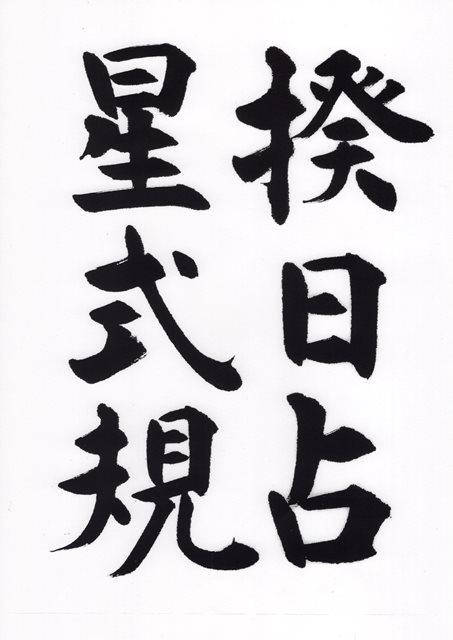 揆日占
星式規